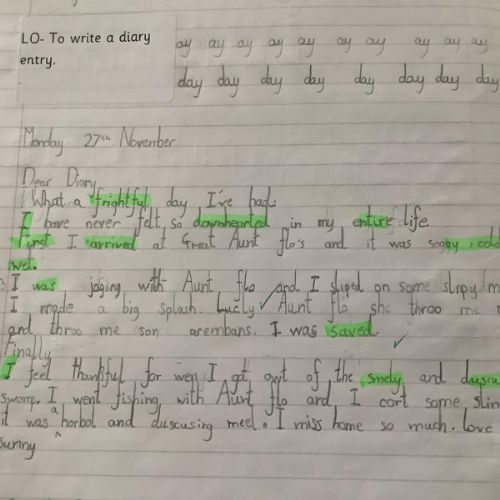 LO- To write a diary
entry.
ay ay ay ay ay ay ay ay ay
day day day day day day day day
Monday 27th November
Dear Diary
What a frightful day I've had.
I have never felt so downhearted in my entire life.
First I arrived at Great Aunt flo's and it was soggy, cold
wet.
I was joging with Aunt flo and I sliped on some
I made a big splash. Aunt flo she throo me
and throo me son arembans. I was saved.
Finally
I feel thankful for wen I got owt of the smely and duscu
swomp. I went fishing with Aunt flo and I cort some slim
it was a horbol and duscusing meel. I miss home so much. love
Sunny